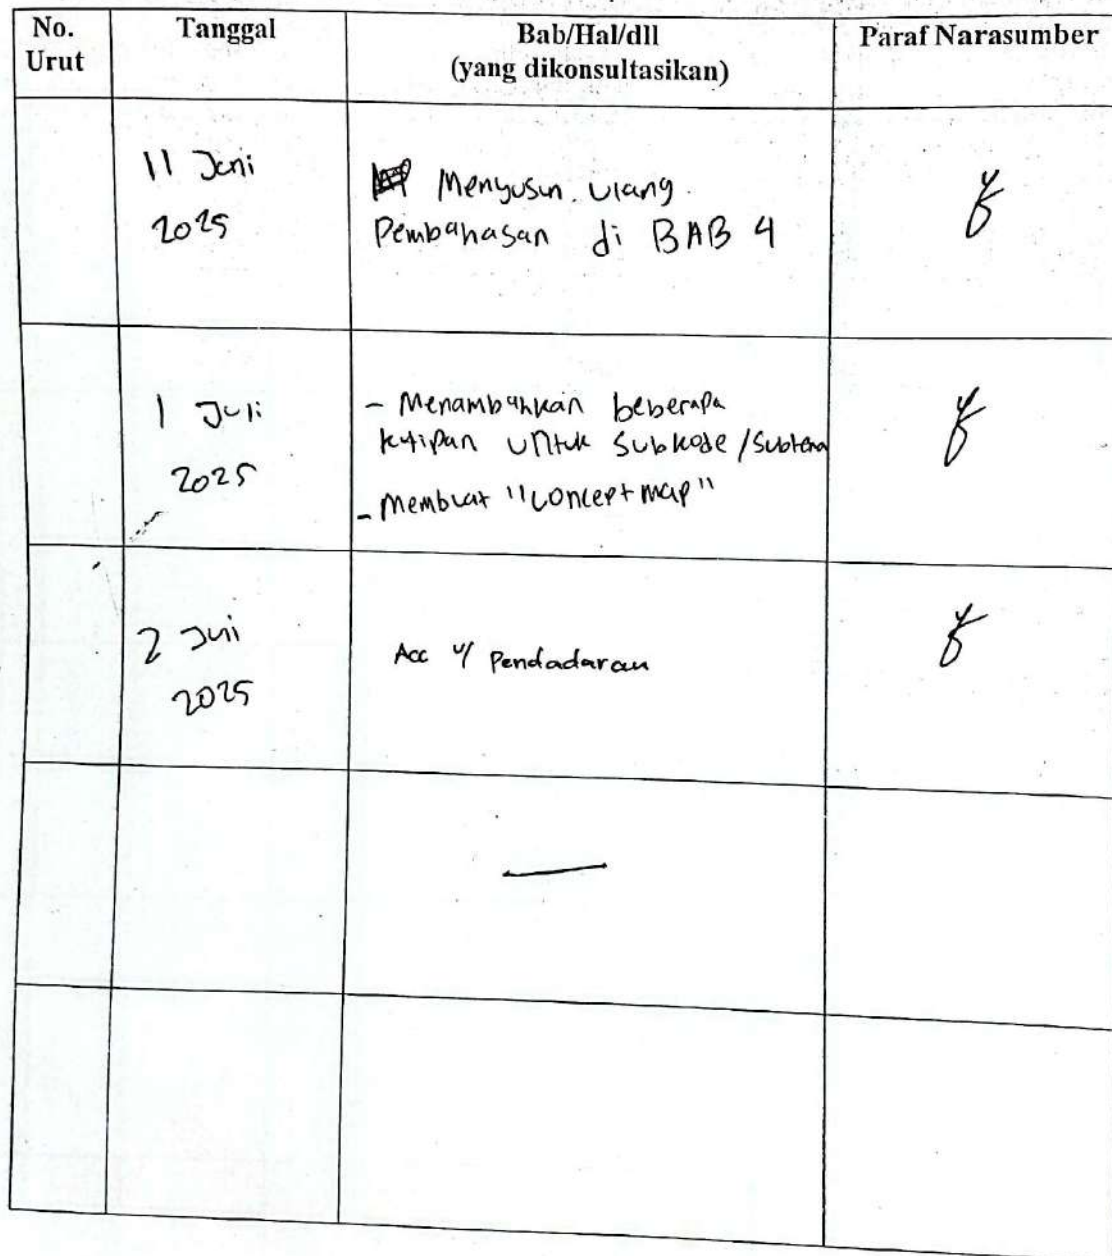 No.
Urut
Tanggal
Bab/Hal/dll
(yang dikonsultasikan)
Paraf Narasumber
11 Juni
2025
Menyusun ulang
Pembahasan di BAB 4
1 Juli
2025
- Menambahkan beberapa
kutipan untuk subkode/subtema
- Membuat "concept map"
2 Juni
2025
Acc u/ Pendadaran